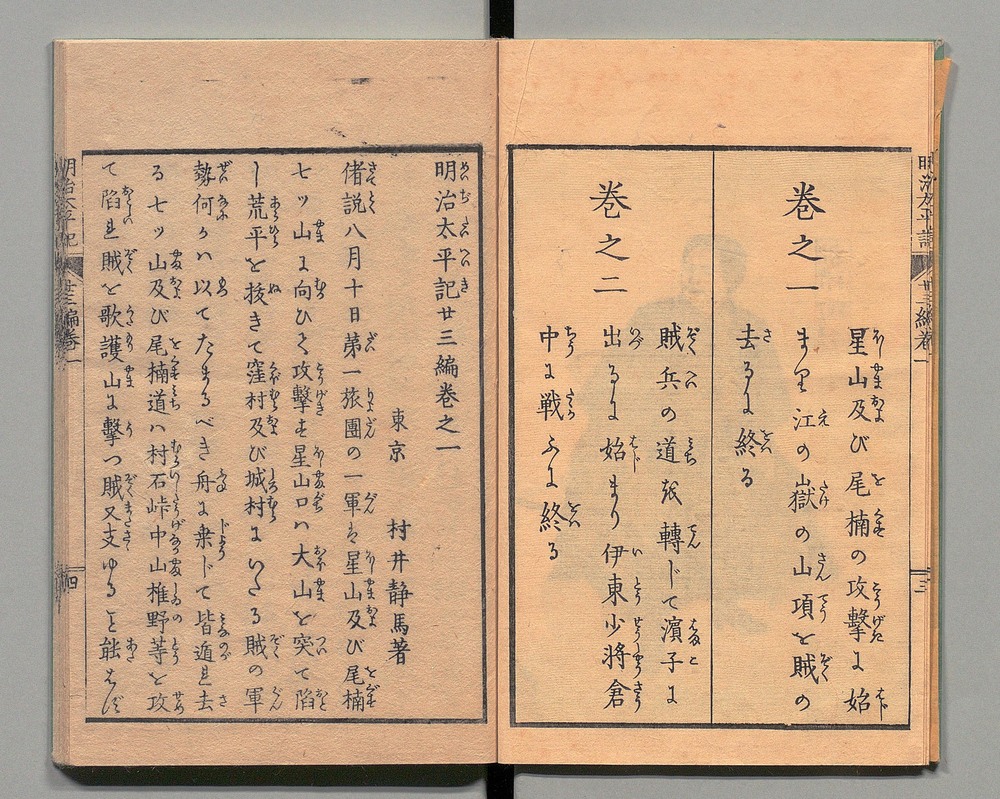 明治太平記 廿三編卷一 三
卷之一
星山及び尾楠の攻擊に始
まり江の嶽の山項を賊の
去るに終る
卷之二
賊兵の道を轉じて濱子に
出るに始まり伊東少將倉
中に戰ふに終る
明治太平記廿三編卷之一
東京 村井静馬著
偖説八月十日第一旅團の一軍は星山及び尾楠
七ッ山に向ひて攻擊す星山口ハ大山を突て陷
し荒平を拔きて窪村及び城村にいたる賊の軍
勢何かハ以てたまるべき舟に乗じて皆遁れ去
る七ッ山及び尾楠道ハ村石峠中山椎野等を攻
て陷れ賊を歌護山に擊つ賊又支ゆること能はず
明治太平記 廿三編卷一 四